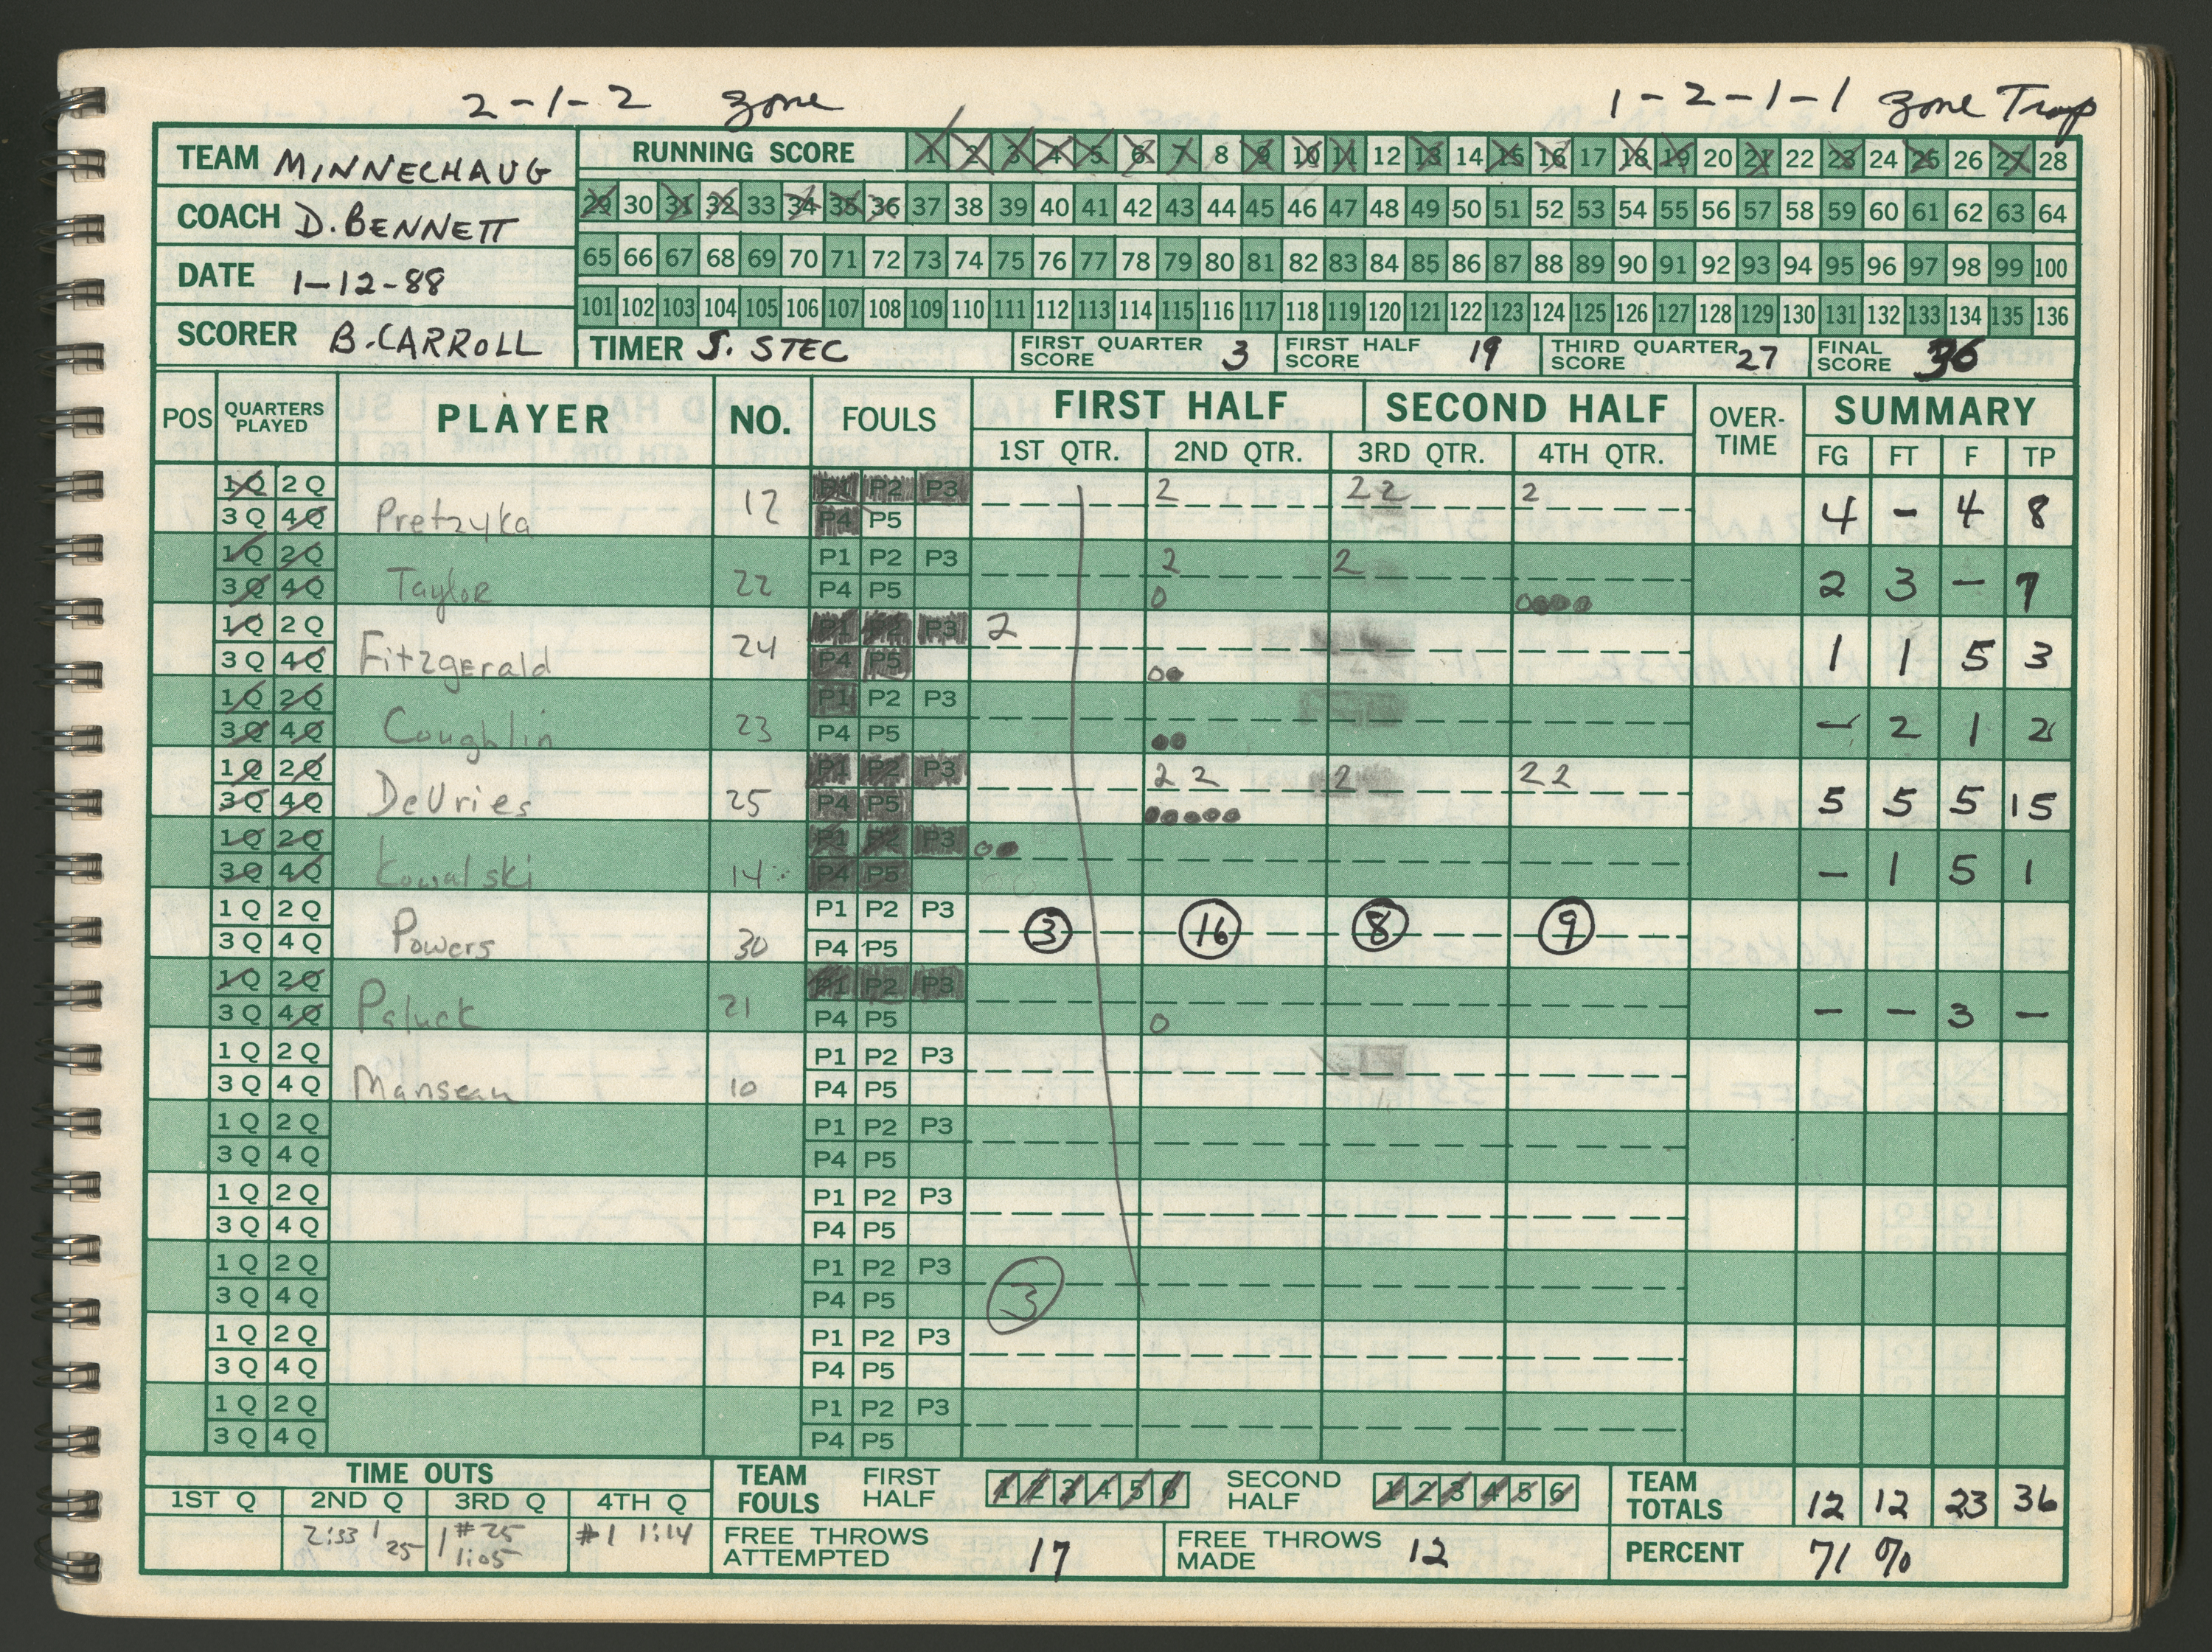 2-1-2 zone 1-2-1-1 zone Trap
TEAM MINNECHAUG
COACH D. BENNETT
DATE 1-12-88
SCORER B. CARROLL
RUNNING SCORE 1 2 3 4 5 6 7 8 9 10 11 12 13 14 15 16 17 18 19 20 21 22 23 24 25 26 27 28
29 30 31 32 33 34 35 36 37 38 39 40 41 42 43 44 45 46 47 48 49 50 51 52 53 54 55 56 57 58 59 60 61 62 63 64
65 66 67 68 69 70 71 72 73 74 75 76 77 78 79 80 81 82 83 84 85 86 87 88 89 90 91 92 93 94 95 96 97 98 99 100
101 102 103 104 105 106 107 108 109 110 111 112 113 114 115 116 117 118 119 120 121 122 123 124 125 126 127 128 129 130 131 132 133 134 135 136
TIMER S. STEC FIRST QUARTER SCORE 3 FIRST HALF SCORE 19 THIRD QUARTER SCORE 27 FINAL SCORE 36
POS QUARTERS PLAYED PLAYER NO. FOULS FIRST HALF SECOND HALF OVER-TIME SUMMARY
1ST QTR. 2ND QTR. 3RD QTR. 4TH QTR. FG FT F TP
1Q 2Q P1 P2 P3 2 2 2 2
3Q 4Q Pretzyka 12 P4 P5 4 - 4 8
1Q 2Q P1 P2 P3 2 2
3Q 4Q Taylor 22 P4 P5 2 3 - 7
1Q 2Q P1 P2 P3 2
3Q 4Q Fitzgerald 24 P4 P5 1 1 5 3
1Q 2Q P1 P2 P3
3Q 4Q Coughlin 23 P4 P5 - 2 1 2
1Q 2Q P1 P2 P3 2 2 2 2 2
3Q 4Q DeVries 25 P4 P5 5 5 5 15
1Q 2Q P1 P2 P3
3Q 4Q Kowalski 14 P4 P5 - 1 5 1
1Q 2Q P1 P2 P3 3 16 8 9
3Q 4Q Powers 30 P4 P5
1Q 2Q P1 P2 P3
3Q 4Q Paluck 21 P4 P5 0 - - 3 -
1Q 2Q P1 P2 P3
3Q 4Q Manseau 10 P4 P5
1Q 2Q P1 P2 P3
3Q 4Q P4 P5
1Q 2Q P1 P2 P3
3Q 4Q P4 P5
1Q 2Q P1 P2 P3
3Q 4Q P4 P5 3
1Q 2Q P1 P2 P3
3Q 4Q P4 P5
1Q 2Q P1 P2 P3
3Q 4Q P4 P5
TIME OUTS
1ST Q 2ND Q 3RD Q 4TH Q
2:33 1 25 1 #25 1:05 #1 1:14
TEAM FOULS FIRST HALF 1 2 3 4 5 6 SECOND HALF 1 2 3 4 5 6 TEAM TOTALS 12 12 23 36
FREE THROWS ATTEMPTED 17 FREE THROWS MADE 12 PERCENT 71 %